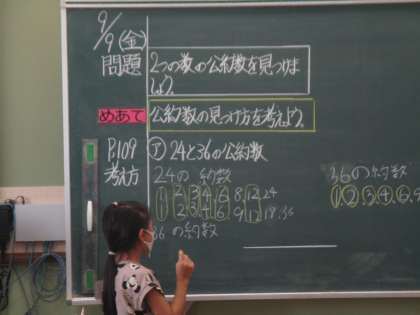 9/9(金)
問題 2つの数の公約数を見つけま
しょう。
めあて 公約数の見つけ方を考えよう。
P.109 ㋐ 24と36の公約数
考え方 24の 約数
1 2 3 4 6 8,12 24
1 2 3 4 6 9 12 18.36
36 の約数
36の約数
①,②,③,④,⑥